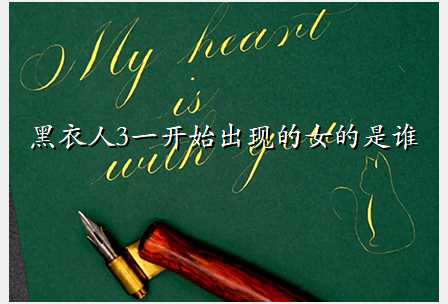 My heart
is
黑衣人3一开始出现的女的是谁
with you